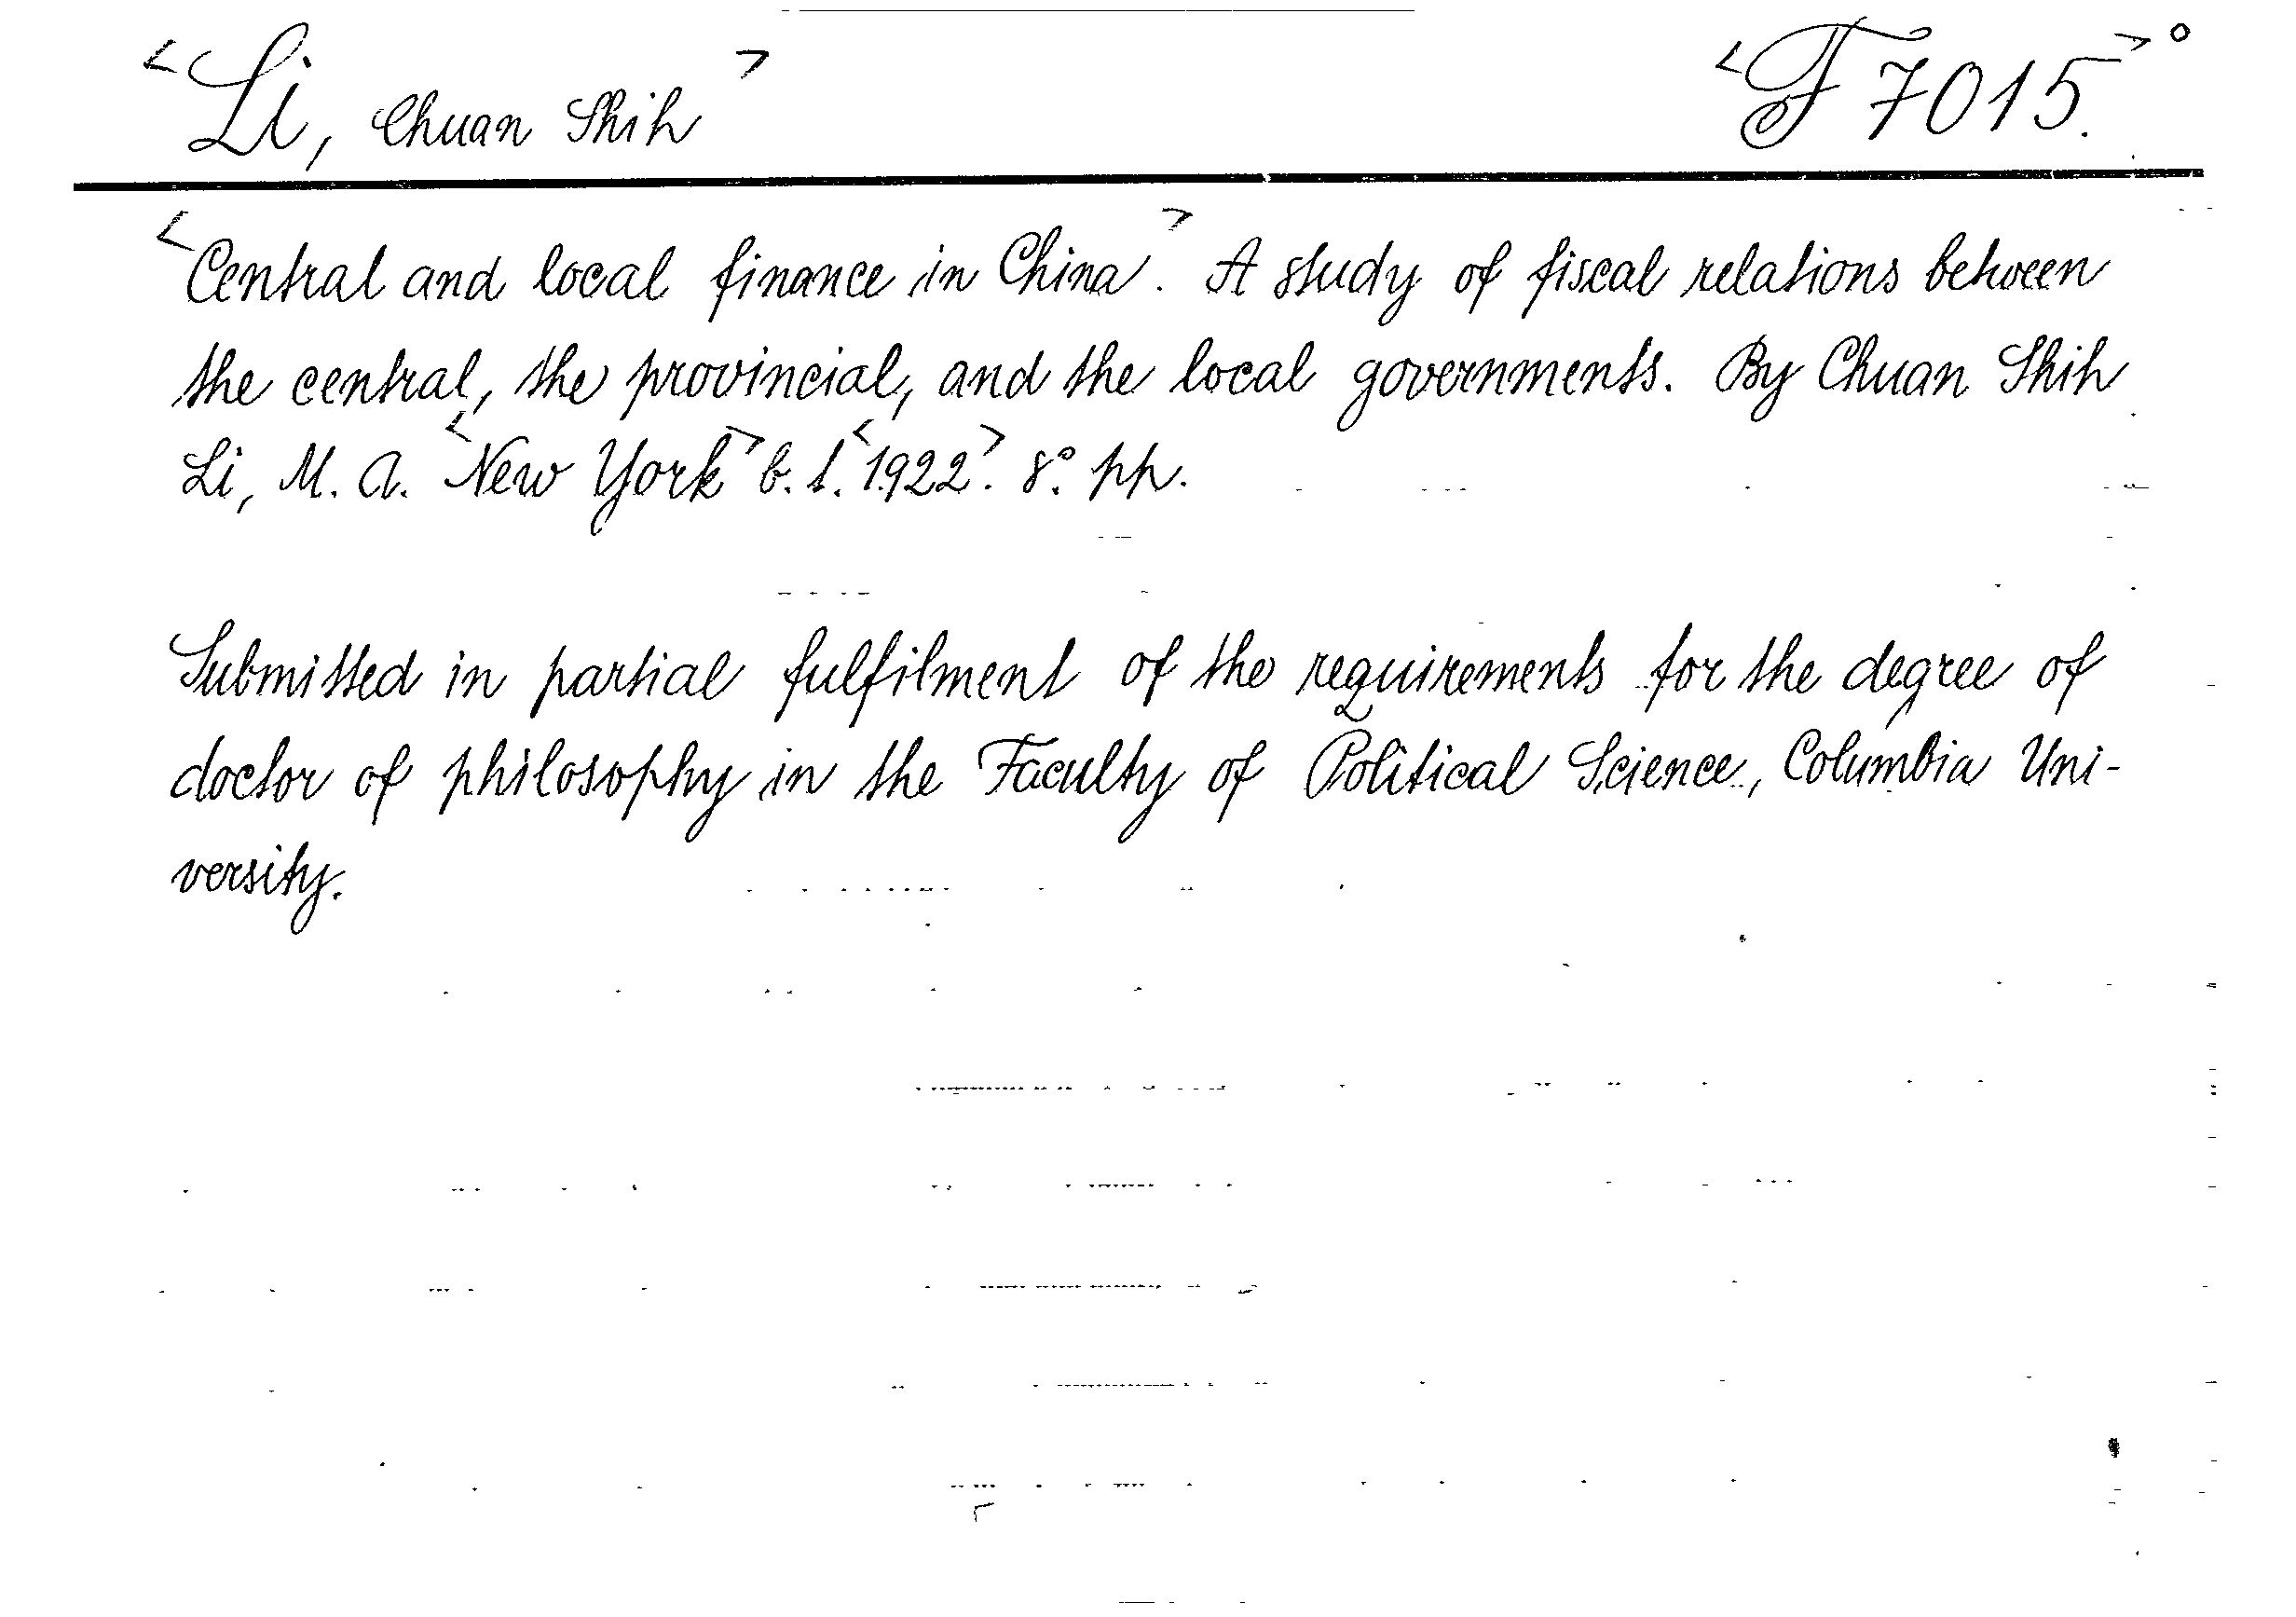 <Li, Chuan Shih> <F 7015.>°
<Central and local finance in China>. A study of fiscal relations between
the central, the provincial, and the local governments. By Chuan Shih
Li, M. A. <New York> b. l. <1922>. 8° pp.
Submitted in partial fulfilment of the requirements for the degree of
doctor of philosophy in the Faculty of Political Science, Columbia Uni-
versity.